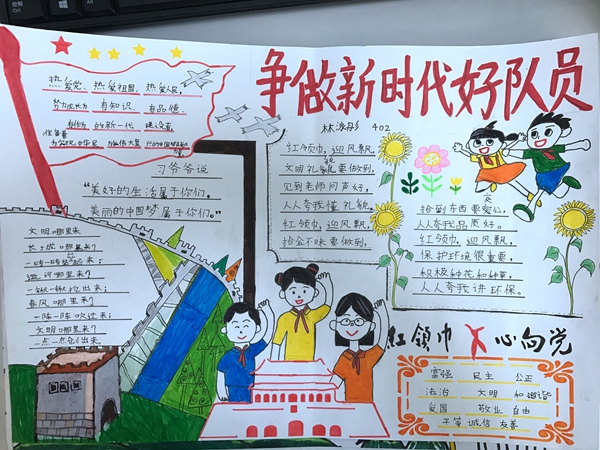 争做新时代好队员
402
热爱党、热爱祖国、热爱人民,
努力成长为 有知识、有品德、
有作为 的新一代 建设者
准备着
习爷爷说
“美好的生活属于你们,
美丽的中国梦属于你们。”
文明哪里来
长城哪里来?
一砖一砖垒起来;
运河哪里来?
一锹一锹挖出来;
春风哪里来?
一阵一阵吹过来;
文明哪里来?
一点一点创出来。
红领巾,迎风飘,
文明礼貌要做到,
见到老师问声好,
人人夸我懂礼貌,
红领巾,迎风飘,
拾金不昧要做到,
拾到东西要交公,
人人夸我品质好。
红领巾,迎风飘,
保护环境很重要,
积极种花和种草,
人人夸我讲环保。
红领巾 心向党
富强 民主 公正
法治 文明 和谐
爱国 敬业 自由
平等 诚信 友善